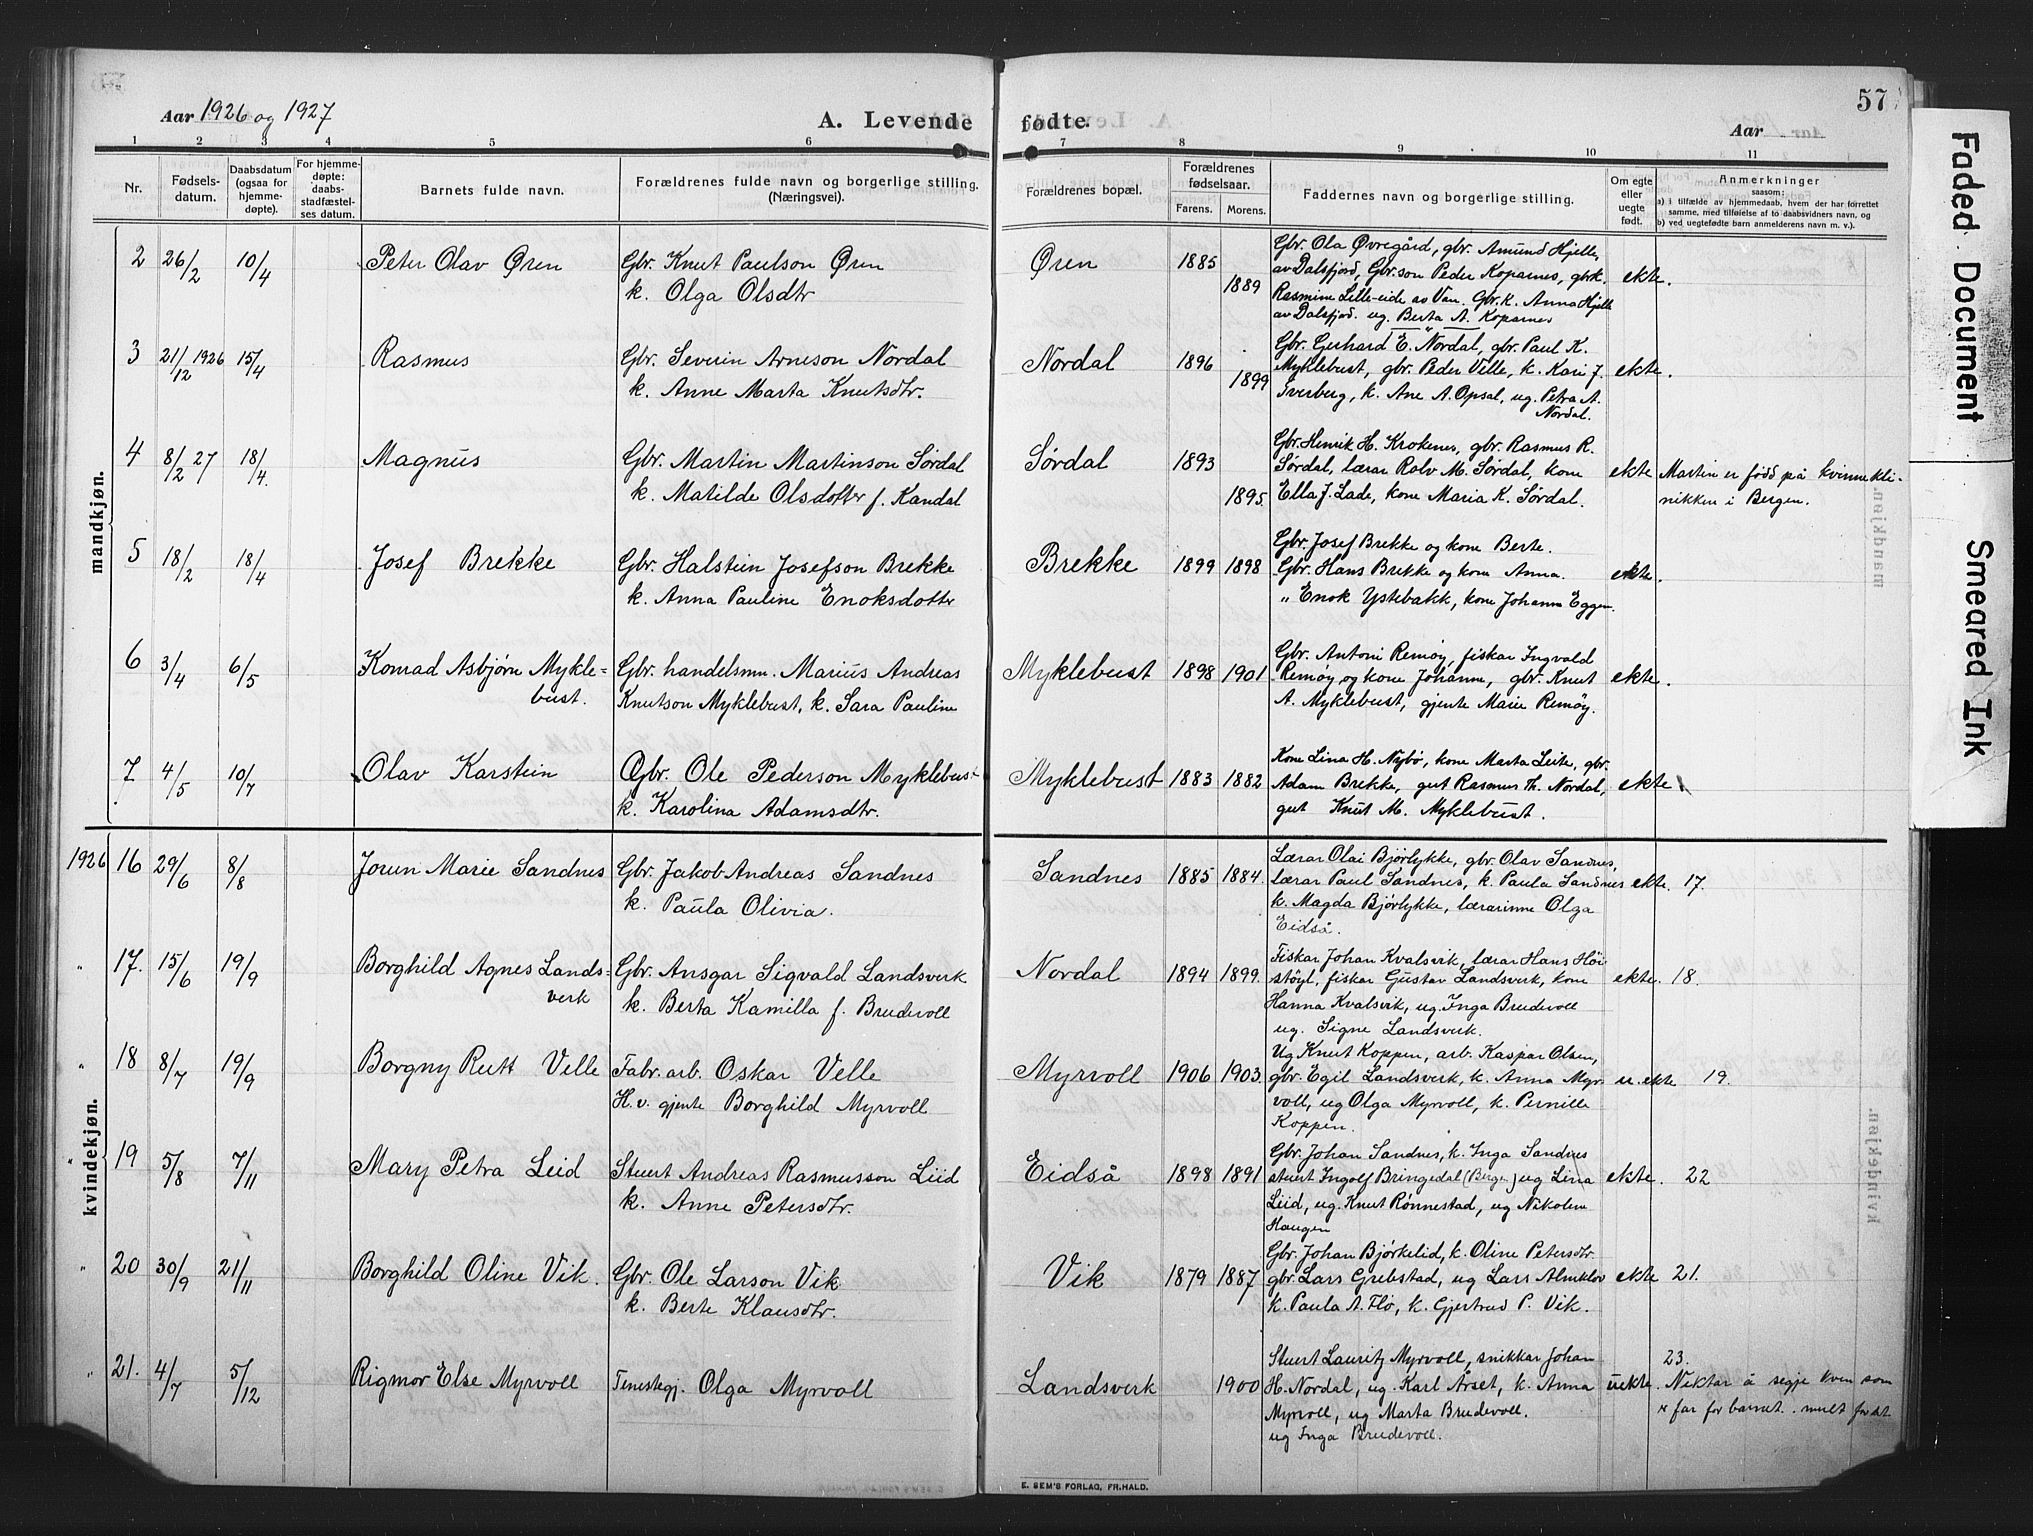 Aar 1926 og 1927
A. Levende fødte.
57
Aar
1 2 3 4 5 6 7 8 9 10 11
Nr.
Fødsels-
datum.
Daabsdatum
(ogsaa for
hjemme-
døpte).
For hjemme-
døpte:
daabs-
stadfæstel-
ses datum.
Barnets fulde navn.
Forældrenes fulde navn og borgerlige stilling.
(Næringsvei).
Forældrenes bopæl.
Forældrenes
fødselsaar.
Farens. Morens.
Faddernes navn og borgerlige stilling.
Om egte
eller
uegte
født.
Anmerkninger
saasom:
a) i tilfælde av hjemmedaab, hvem der har forrettet
samme, med tilføielse af to daabsvidners navn, og
b) ved uegtefødte barn anmelderens navn m. v.).
mandkjøn.
2 26/2 10/4 Peter Olav Øren
Gbr. Knut Paulson Øren
k. Olga Olsdtr
Øren 1885 1889
Gbr. Ola Øvregård, gbr. Amund Hjelle,
av Dalsfjord, Gbr.son Peder Koparnes, gbrk.
Rasmine Lille-eide av Van. Gbr.k. Anna Hjelle
av Dalsfjord. ug. Berta A. Koparnes
ekte.
3 21/12 1926 15/4 Rasmus
Gbr. Severin Arneson Nordal
k. Anne Marta Knutsdtr.
Nordal 1896 1899
Gbr. Gerhard E. Nordal, gbr. Paul K.
Myklebust, gbr. Peder Velle, k. Kari J.
Sverberg, k. Ane A. Opsal, ug. Petra A.
Nordal.
ekte.
4 8/2 27 18/4. Magnus
Gbr. Martin Martinson Sørdal
k. Matilde Olsdotter f. Kandal
Sørdal 1893 1895.
Gbr. Henrik H. Krokenes, gbr. Rasmus R.
Sørdal, lærar Rolv M. Sørdal, kone
Ella J. Lade, kone Maria K. Sørdal.
ekte
Martin er född på kvinnekli-
nikken i Bergen.
5 18/2 18/4 Josef Brekke
Gbr. Halstein Josefson Brekke
k. Anna Pauline Enoksdotter
Brekke 1899 1898
Gbr. Josef Brekke og kone Berte.
Gbr. Hans Brekke og kone Anna.
" Enok Ystebakk, kone Johanne Eggen.
ekte.
6 3/4 6/5 Konrad Asbjørn Mykle=
bust.
Gbr. handelsmn. Marius Andreas
Knutson Myklebust, k. Sara Pauline
Myklebust 1898 1901
Gbr. Antoni Remøy, fiskar Ingvald
Remøy og kone Johanne, gbr. Knut
A. Myklebust, gjente Marie Remøy.
ekte.
7 4/5 10/7 Olav Karstein
Gbr. Ole Pederson Myklebust
k. Karolina Adamsdtr.
Myklebust 1883 1882
Kone Lina H. Nybø, kone Marta Leite, gbr.
Adam Brekke, gut Rasmus Th. Nordal,
gut Knut M. Myklebust.
ekte
kvindekjøn.
1926 16 29/6 8/8 Jorun Marie Sandnes
Gbr. Jakob Andreas Sandnes
k. Paula Olivia.
Sandnes 1885 1884.
Lærar Olai Bjørlykke, gbr. Olav Sandnes,
lærar Paul Sandnes, k. Paula Sandnes
k. Magda Bjørlykke, lærarinne Olga
Eidså.
ekte. 17.
" 17. 15/6 19/9 Borghild Agnes Lands-
verk
Gbr. Ansgar Sigvald Landsverk
k. Berta Kamilla f. Brudevoll
Nordal 1894 1899.
Fiskar Johan Kvalsvik, lærar Hans Höi-
støyl, fiskar Gustav Landsverk, kone
Hanna Kvalsvik, ug. Inga Brudevoll
ug. Signe Landsverk.
ekte. 18.
" 18 8/7 19/9 Borgny Rutt Velle
Fabr. arb. Oskar Velle
H. v. gjente Borghild Myrvoll
Myrvoll 1906 1903.
Ug Knut Koppen, arb. Kaspar Olsen,
gbr. Egil Landsverk, k. Anna Myr-
voll, ug Olga Myrvoll, k. Pernille
Koppen.
u. ekte 19.
" 19 5/8 7/11 Mary Petra Leid
Stuert Andreas Rasmusson Leid
k. Anne Petersdtr.
Eidså 1898 1891
Gbr. Johan Sandnes, k. Inga Sandnes
stuert Ingolf Bringedal (Bergen) ug Lina
Leid, ug. Knut Rønnestad, ug Nikoline
Haugen
ekte. 22
" 20 30/9 21/11 Borghild Oline Vik.
Gbr. Ole Larson Vik
k. Berte Klausdtr.
Vik 1879 1887
Gbr. Johan Bjørkelid, k. Oline Petersdtr.
gbr. Lars Grebstad, ug Lars Almklov
k. Paula A. Flø, k. Gjertrud P. Vik.
ekte 21.
" 21. 4/7 5/12 Rigmor Else Myrvoll
Tenestegj. Olga Myrvoll
Landsverk 1900
Stuert Lauritz Myrvoll, snikkar Johan
H. Nordal, ug. Karl Årset, k. Anna
Myrvoll, ug Marta Brudevoll.
ug Inga Brudevoll.
uekte.
23.
Nektar å segje kven som
er far for barnet.
E. SEM'S FORLAG, FR.HALD.
Faded Document
Smeared Ink